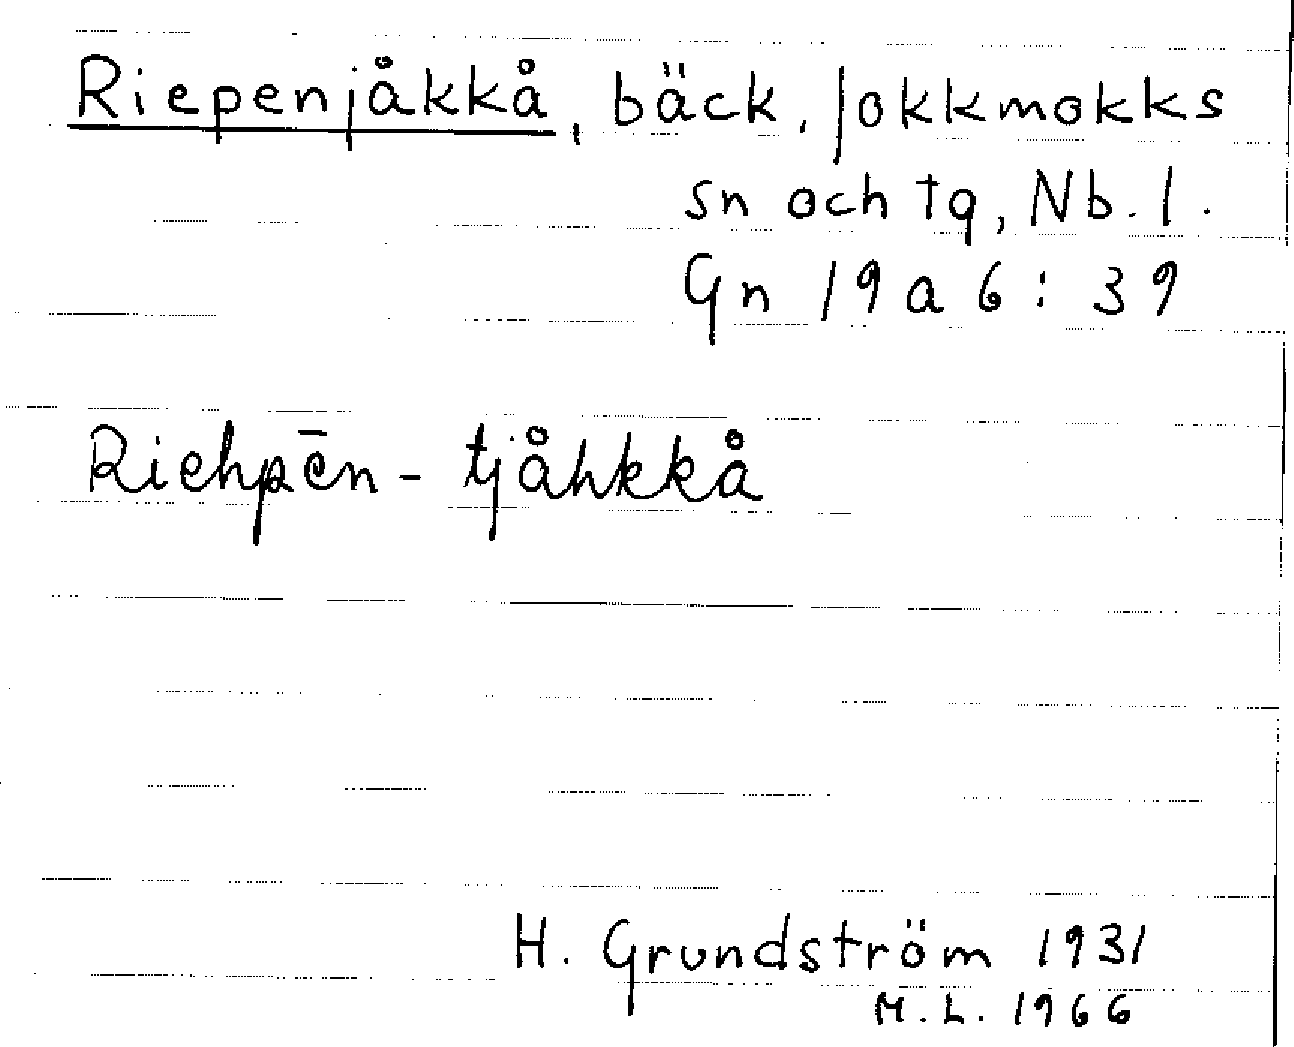 Riepenjåkkå, bäck, Jokkmokks
sn och tg, Nb. l.
Gn 19 a 6 : 39
Riehpēn - tjåhkkå
H. Grundström 1931
M. L. 1966